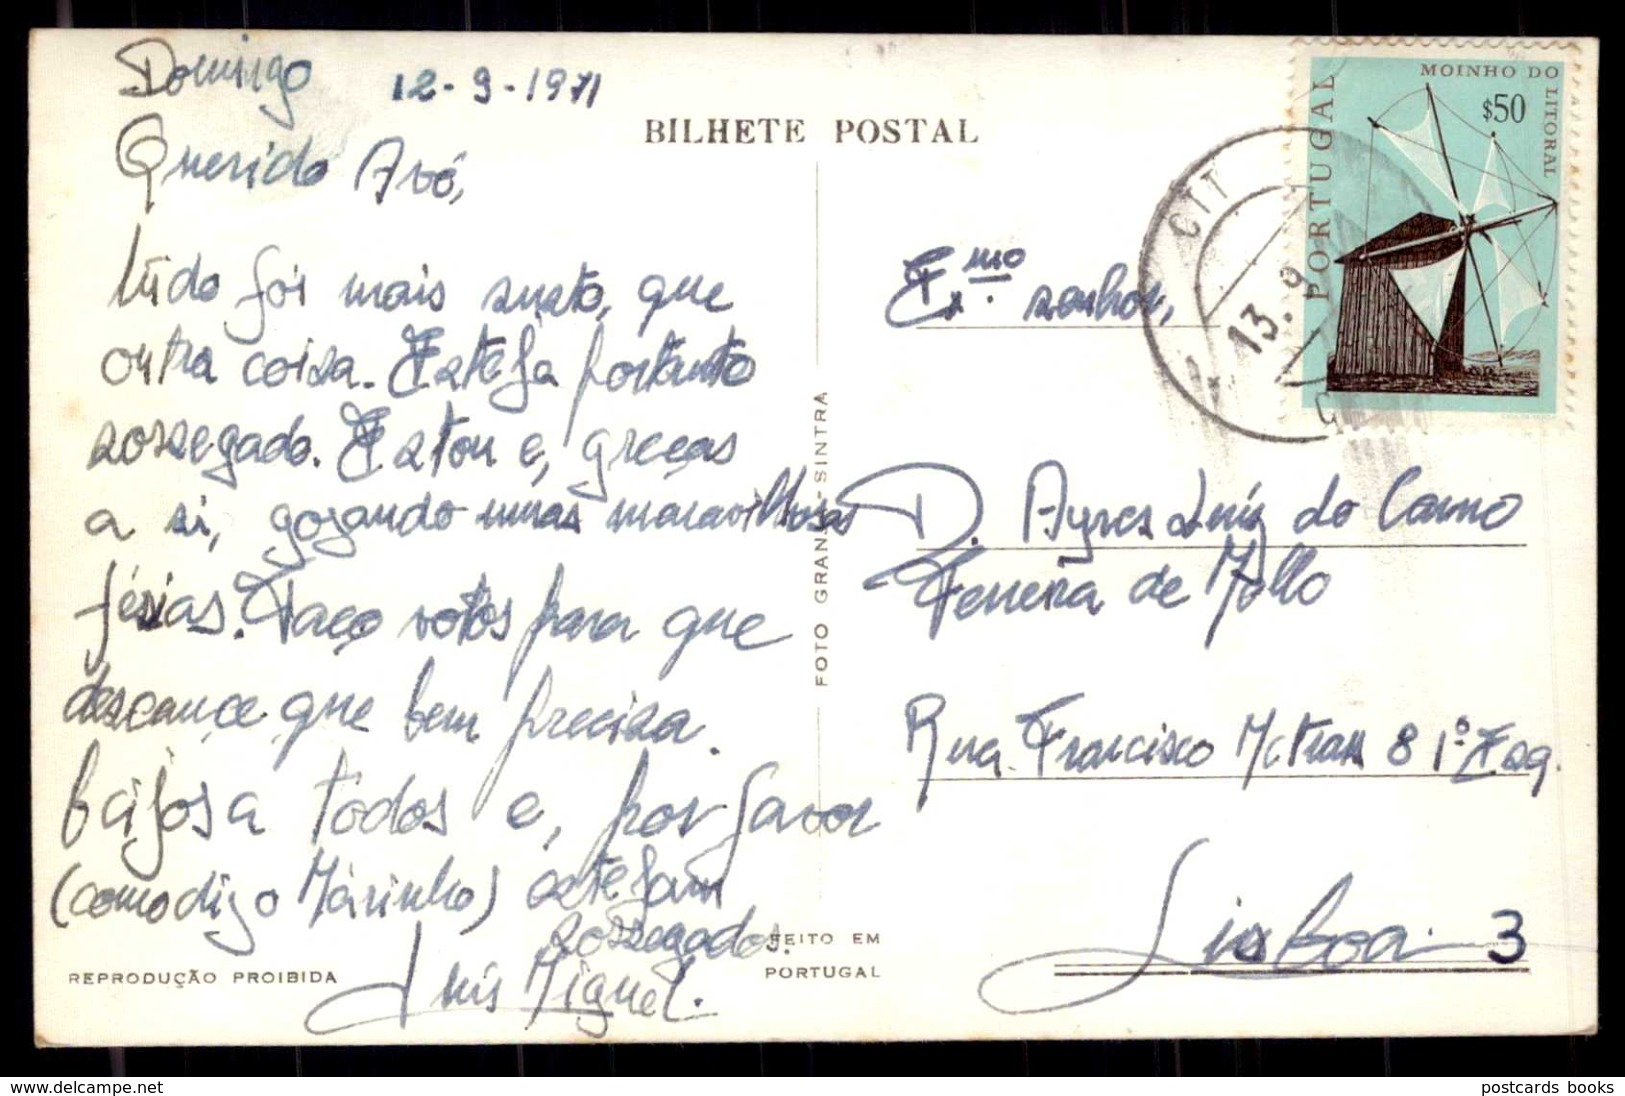 Domingo 12-9-1971
Querido Avô,
tudo foi mais susto, que
outra coisa. Esteja portanto
sossegado. Estou e, graças
a si, gozando umas maravilhosas
férias. Faço votos para que
descance que bem precisa.
Beijos a todos e, por favor
(como digo Màrinho) estejam
sossegados.
Luís Miguel.
REPRODUÇÃO PROIBIDA
BILHETE POSTAL
FOTO GRAN-SINTRA
FEITO EM
PORTUGAL
PORTUGAL
MOINHO DO LITORAL
$50
CTT
13.9
Exmo. senhor,
D. Ayres Luís do Carmo
Ferreira de Mello
Rua Francisco Metrass 8 1º Esq.
Lisboa 3
www.delcampe.net
postcards books